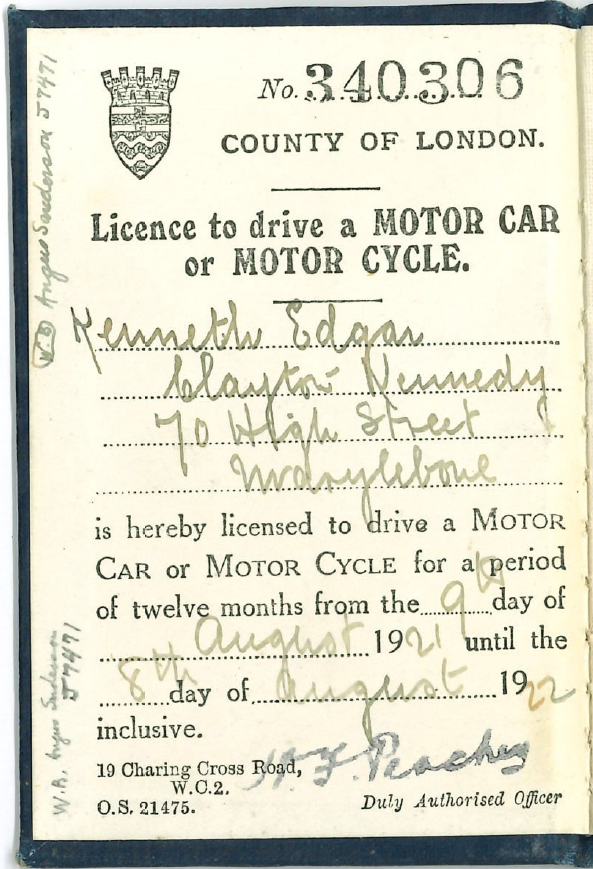 No. 340306
COUNTY OF LONDON.
Licence to drive a MOTOR CAR
or MOTOR CYCLE.
Kenneth Edgar
Clayton Kennedy
70 High Street
Marylebone
is hereby licensed to drive a MOTOR
CAR or MOTOR CYCLE for a period
of twelve months from the 9th day of
August 1921 until the
8th day of August 1922
inclusive.
19 Charing Cross Road,
W.C.2.
O.S. 21475.
Peachey
Duly Authorised Officer
Angus Sanderson J7471
W.A. Angus Sanderson
J7471